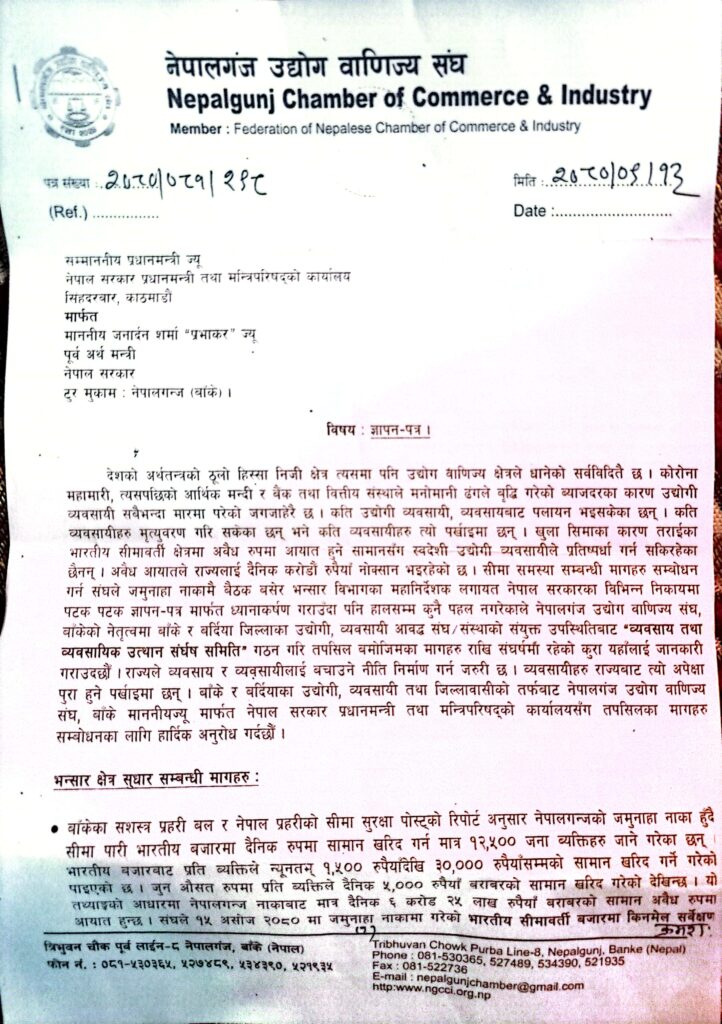 नेपालगंज उद्योग वाणिज्य संघ
Nepalgunj Chamber of Commerce & Industry
Member : Federation of Nepalese Chamber of Commerce & Industry
पत्र संख्या : २०८०/०८१/२९८
मिति : २०८०/०९/१३
(Ref.) ................
Date :...........................
सम्माननीय प्रधानमन्त्री ज्यू
नेपाल सरकार प्रधानमन्त्री तथा मन्त्रिपरिषद्को कार्यालय
सिंहदरबार, काठमाडौं
मार्फत
माननीय जनार्दन शर्मा "प्रभाकर" ज्यू
पूर्व अर्थ मन्त्री
नेपाल सरकार
टुर मुकाम : नेपालगन्ज (बाँके) ।
विषय : ज्ञापन-पत्र ।
देशको अर्थतन्त्रको ठूलो हिस्सा निजी क्षेत्र त्यसमा पनि उद्योग वाणिज्य क्षेत्रले धानेको सर्वविदितै छ । कोरोना
महामारी, त्यसपछिको आर्थिक मन्दी र बैंक तथा वित्तीय संस्थाले मनोमानी ढंगले बृद्धि गरेको ब्याजदरका कारण उद्योगी
व्यवसायी सवैभन्दा मारमा परेको जगजाहेरै छ । कति उद्योगी व्यवसायी, व्यवसायबाट पलायन भइसकेका छन् । कति
व्यवसायीहरु मृत्युवरण गरि सकेका छन् भने कति व्यवसायीहरु त्यो पर्खाइमा छन् । खुला सिमाका कारण तराईका
भारतीय सीमावर्ती क्षेत्रमा अवैध रुपमा आयात हुने सामानसंग स्वदेशी उद्योगी व्यवसायीले प्रतिष्पर्धा गर्न सकिरहेका
छैनन् । अवैध आयातले राज्यलाई दैनिक करोडौं रुपैयाँ नोक्सान भइरहेको छ । सीमा समस्या सम्बन्धी मागहरु सम्बोधन
गर्न संघले जमुनाहा नाकामै बैठक बसेर भन्सार विभागका महानिर्देशक लगायत नेपाल सरकारका विभिन्न निकायमा
पटक पटक ज्ञापन-पत्र मार्फत ध्यानाकर्षण गराउंदा पनि हालसम्म कुनै पहल नगरेकाले नेपालगंज उद्योग वाणिज्य संघ,
बाँकेको नेतृत्वमा बाँके र बर्दिया जिल्लाका उद्योगी, व्यवसायी आवद्ध संघ/संस्थाको संयुक्त उपस्थितिबाट "व्यवसाय तथा
व्यवसायिक उत्थान संर्घष समिति" गठन गरि तपसिल बमोजिमका मागहरु राखि संघर्षमा रहेको कुरा यहाँलाई जानकारी
गराउदछौं । राज्यले व्यवसाय र व्यवसायीलाई बचाउने नीति निर्माण गर्न जरुरी छ । व्यवसायीहरु राज्यबाट त्यो अपेक्षा
पुरा हुने पर्खाइमा छन् । बाँके र बर्दियाका उद्योगी, व्यवसायी तथा जिल्लावासीको तर्फबाट नेपालगंज उद्योग वाणिज्य
संघ, बाँके माननीयज्यू मार्फत नेपाल सरकार प्रधानमन्त्री तथा मन्त्रिपरिषद्को कार्यालयसँग तपसिलका मागहरु
सम्बोधनका लागि हार्दिक अनुरोध गर्दछौं ।
भन्सार क्षेत्र सुधार सम्बन्धी मागहरु :
• बाँकेका सशस्त्र प्रहरी बल र नेपाल प्रहरीको सीमा सुरक्षा पोस्ट्को रिपोर्ट अनुसार नेपालगन्जको जमुनाहा नाका हुँदै
सीमा पारी भारतीय बजारमा दैनिक रुपमा सामान खरिद गर्न मात्र १२,५०० जना व्यक्तिहरु जाने गरेका छन् ।
भारतीय बजारबाट प्रति व्यक्तिले न्यूनतम् १,५०० रुपैयाँदेखि ३०,००० रुपैयाँसम्मको सामान खरिद गर्ने गरेको
पाइएको छ । जुन औसत रुपमा प्रति व्यक्तिले दैनिक ५,००० रुपैयाँ बराबरको सामान खरिद गरेको देखिन्छ । यो
तथ्याङ्कको आधारमा नेपालगन्ज नाकाबाट मात्र दैनिक ६ करोड २५ लाख रुपैयाँ बराबरको सामान अवैध रुपमा
आयात हुन्छ । संघले १५ असोज २०८० मा जमुनाहा नाकामा गरेको भारतीय सीमावर्ती बजारमा किनमेल सर्वेक्षण
(१)
क्रमश:
त्रिभुवन चौक पूर्व लाईन-८ नेपालगंज, बाँके (नेपाल)
फोन नं. : ०८१-५३०३६५, ५२७४८९, ५३४३९०, ५२१९३५
Tribhuvan Chowk Purba Line-8, Nepalgunj, Banke (Nepal)
Phone : 081-530365, 527489, 534390, 521935
Fax : 081-522736
E-mail : nepalgunjchamber@gmail.com
http:www.ngcci.org.np